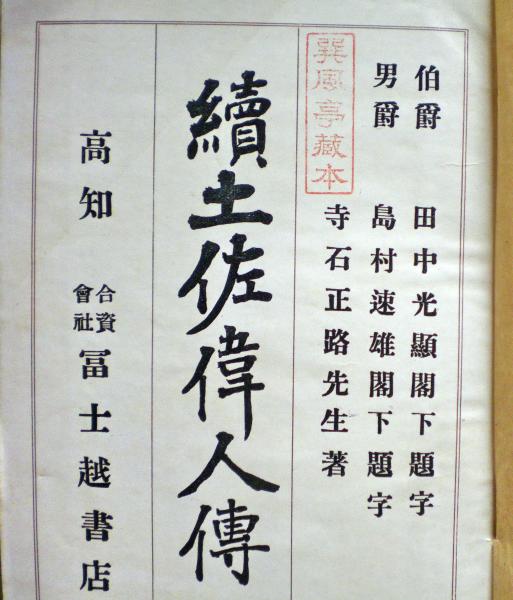 伯爵 田中光顯閣下題字
男爵 島村速雄閣下題字
巽風亭藏本
寺石正路先生著
續土佐偉人傳
高知 合資會社 冨士越書店